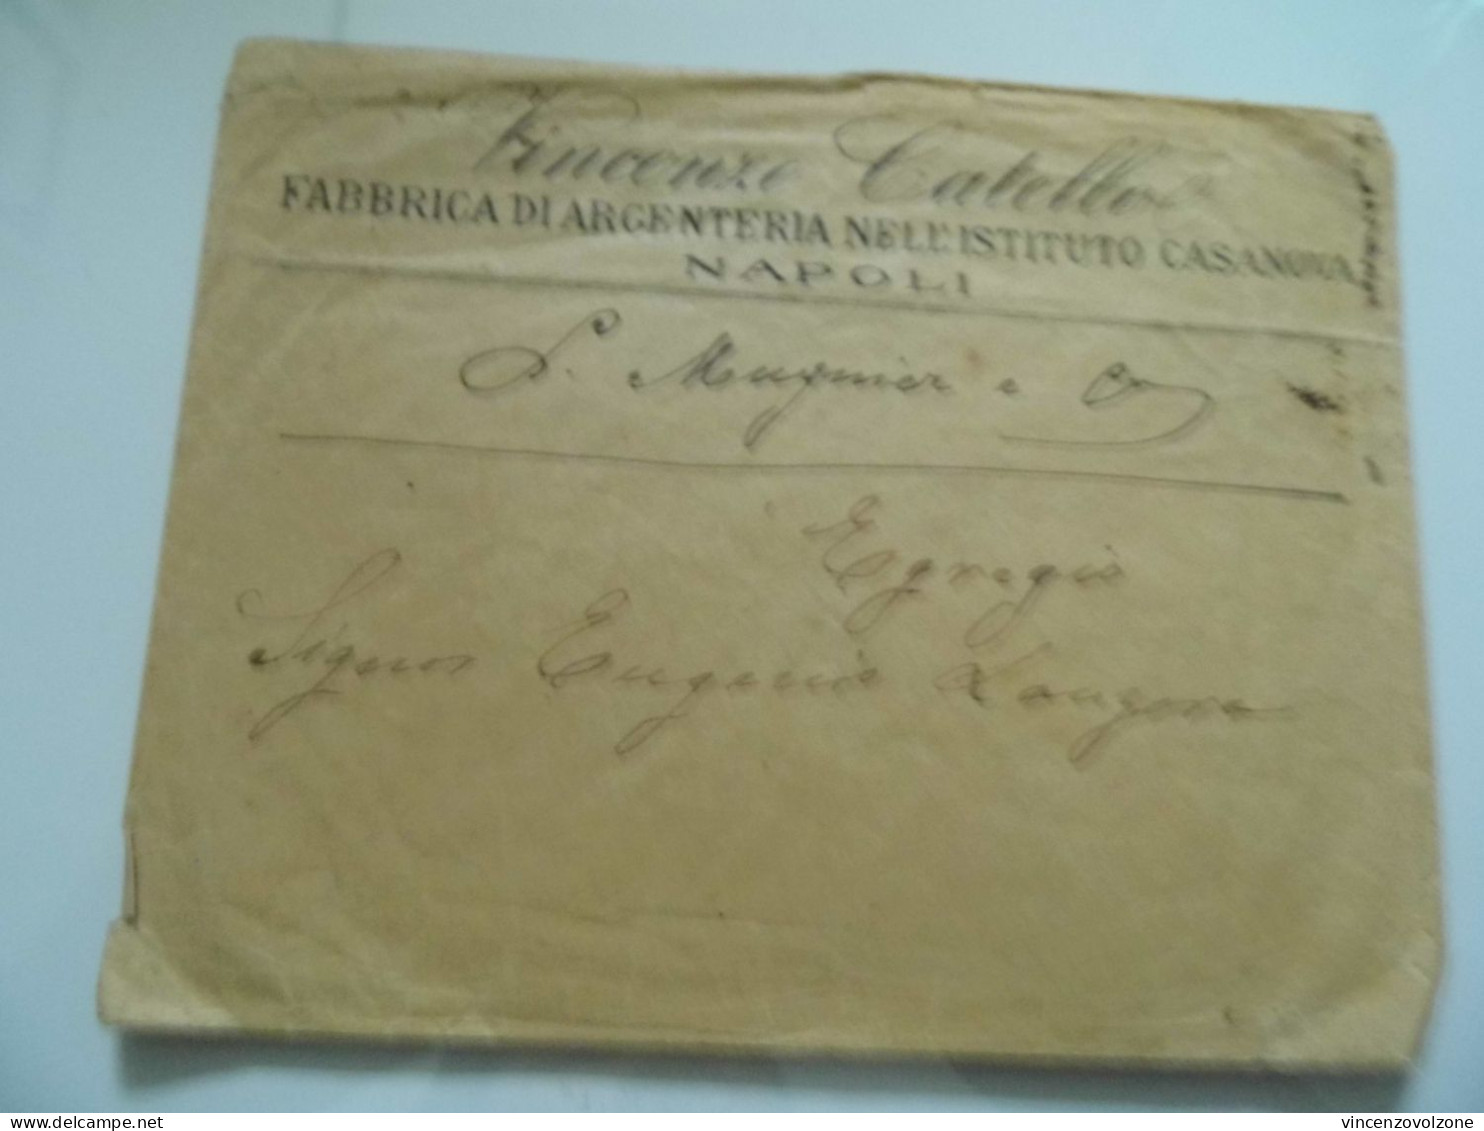 Vincenzo Catello
FABBRICA DI ARGENTERIA NELL'ISTITUTO CASANOVA
NAPOLI
Mugnier e
Egregio
Signor Eugenio
delcampe.net
vincenzovolzone